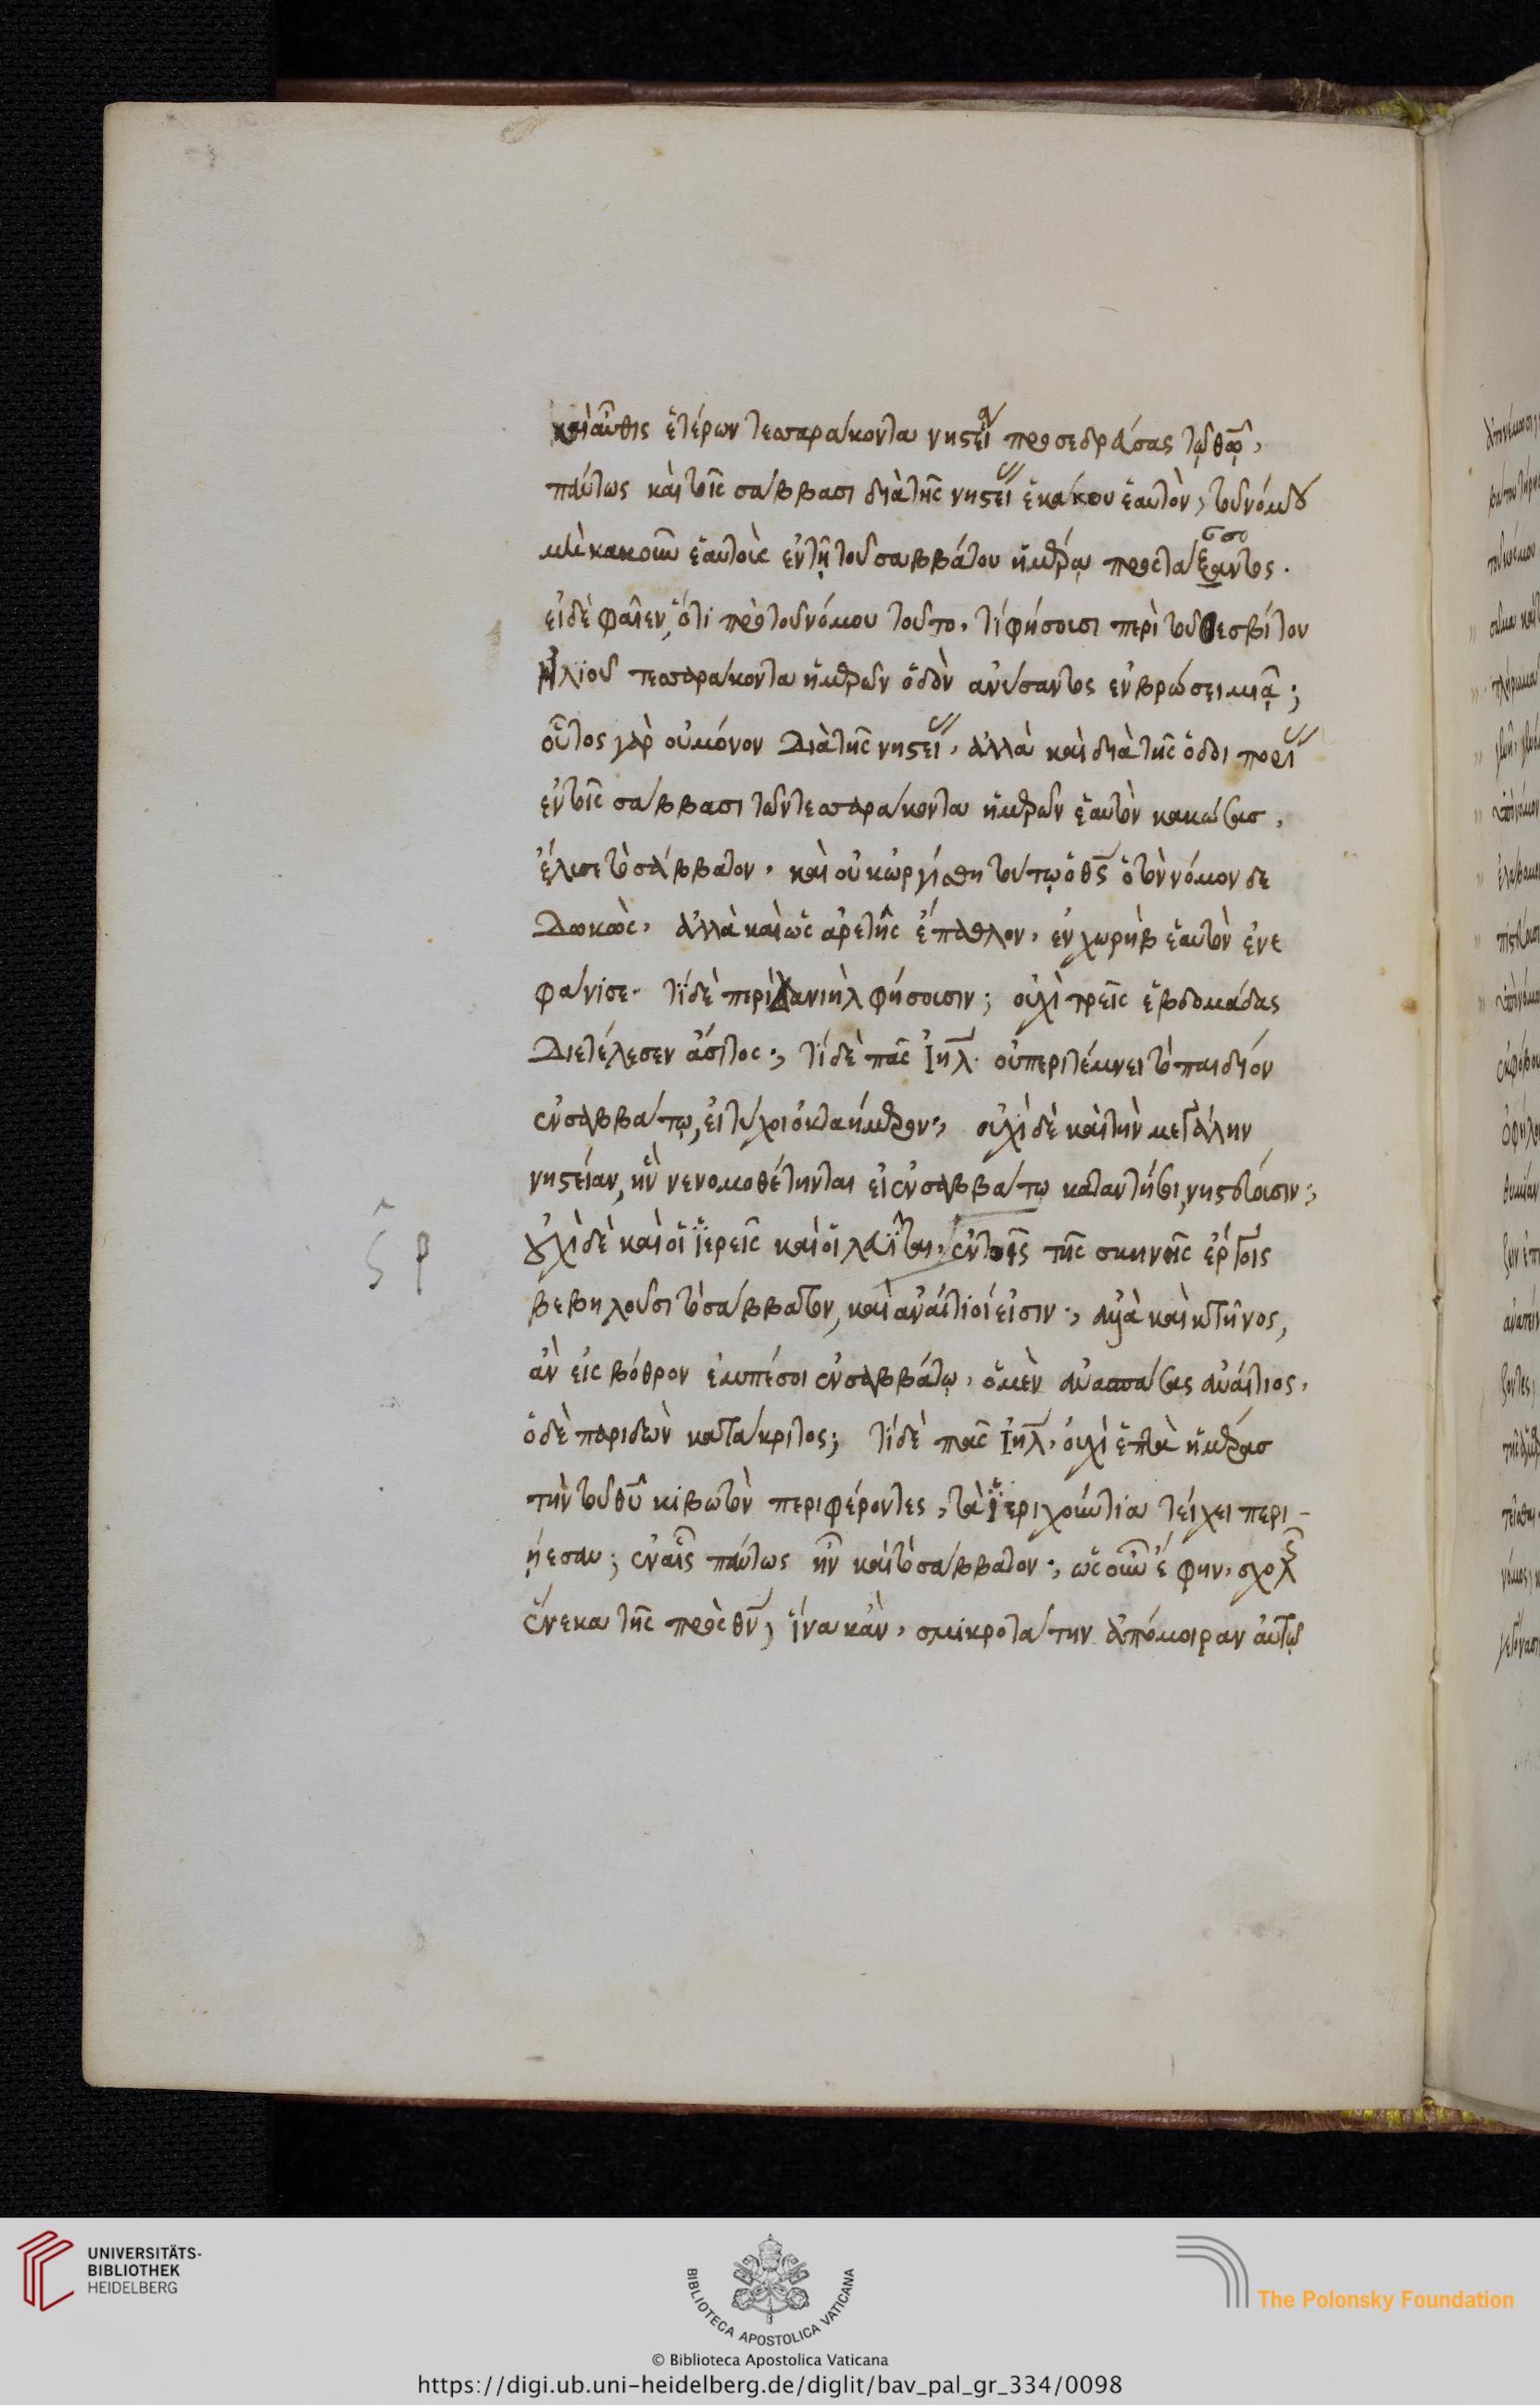 καὶ αὖθις ἑτέρων τεσσαράκοντα νηστεία προσεδράσας τῷ θῶ,
πάντως καὶ τοῖς σάββασι διὰ τῆς νηστεί ἐκάκου ἑαυτὸν, τοῦ νόμου
μὴ κακοῦν ἑαυτοὺς ἐν τῇ τοῦ σαββάτου ἡμέρᾳ προστάξαντος.
σσο
εἰ δὲ φαῖεν, ὅτι πρὸ τοῦ νόμου τοῦτο, τί φήσουσι περὶ τοῦ θεσβίτου
Ἠλίου τεσσαράκοντα ἡμερῶν ὁδὸν ἀνύσαντος ἐν βρώσει μιᾷ;
οὗτος γὰρ οὐ μόνον διὰ τῆς νηστεί, ἀλλὰ καὶ διὰ τῆς ὁδοι πορί
ἐν τοῖς σάββασι τῶν τεσσαράκοντα ἡμερῶν ἑαυτὸν κακώσας,
ἔλυσε τὸ σάββατον. καὶ οὐκ ὠργίσθη τούτῳ ὁ θς ὁ τὸν νόμον δε
δωκὼς, ἀλλὰ καὶ ὡς ἀρετῆς ἔπαθλον, ἐν χωρὴβ ἑαυτὸν ἐνε
φάνισε. τί δὲ περὶ Δανιὴλ φήσουσιν; οὐχὶ τρεῖς ἑβδομάδας
διετέλεσεν ἄσιτος; τί δὲ πᾶς Ἰηλ. οὐ περιτέμνει τὸ παιδίον
ἐν σαββάτῳ, εἰ τύχοι ὀκταήμερον; οὐχὶ δὲ καὶ τὴν μεγάλην
νηστείαν, ἣν νενομοθέτηνται εἰ ἐν σαββάτω καταντήσει, νηστεύουσιν;
οὐχὶ δὲ καὶ οἱ ἱερεῖς καὶ οἱ λευῖται, ἐν τοῖς τῆς σκηνῆς ἔργοις
βεβηλοῦσι τὸ σάββατον, καὶ ἀναίτιοί εἰσιν; ἀλλὰ καὶ κτῆνος,
ἂν εἰς βόθρον ἐμπέσοι ἐν σαββάτῳ, ὁ μὲν ἀνασπάσας ἀναίτιος,
ὁ δὲ παριδὼν κατάκριτος; τί δὲ πᾶς Ἰηλ, οὐχὶ ἑπτὰ ἡμέρας
τὴν τοῦ θυ κιβωτὸν περιφέροντες, τὰ Ἱεριχούντια τείχει περι-
ῄεσαν; ἐν αἷς πάντως ἦν καὶ τὸ σάββατον; ὡς οὖν ἔφην, σχολ
ἕνεκα τῆς πρὸς θν, ἵνα κἂν, σμικροτάτην ἀπόμοιραν αὐτῷ
UNIVERSITÄTS-
BIBLIOTHEK
HEIDELBERG
BIBLIOTECA APOSTOLICA VATICANA
The Polonsky Foundation
© Biblioteca Apostolica Vaticana
https://digi.ub.uni-heidelberg.de/diglit/bav_pal_gr_334/0098